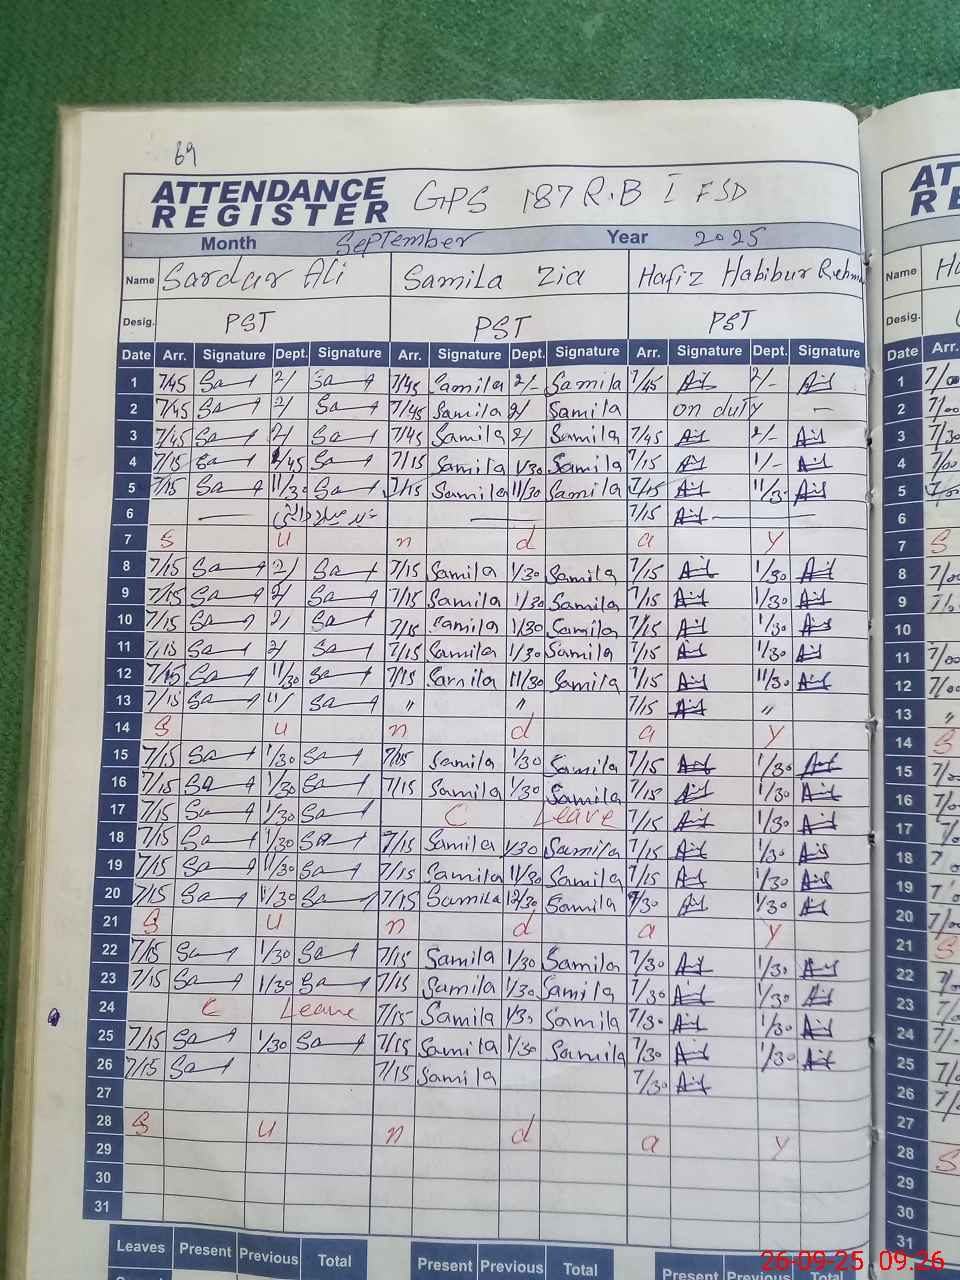 69
ATTENDANCE REGISTER GPS 187 R.B I FSD
Month September Year 2025
Name Sardar Ali Samila Zia Hafiz Habibur Rehm
Desig. PST PST PST
Date Arr. Signature Dept. Signature Arr. Signature Dept. Signature Arr. Signature Dept. Signature
1 7/45 Sa 2/ Sa 7/45 Samila 2/- Samila 7/45 2/-
2 7/45 Sa 2/ Sa 7/45 Samila 2/ Samila on duty —
3 7/45 Sa 2/ Sa 7/45 Samila 2/ Samila 7/45 2/-
4 7/15 Sa 1/45 Sa 7/15 Samila 1/30 Samila 7/15 1/-
5 7/15 Sa 11/30 Sa 7/15 Samila 11/30 Samila 7/15 11/30
6 — — 7/15 —
7 S u n d a y
8 7/15 Sa 2/ Sa 7/15 Samila 1/30 Samila 7/15 1/30
9 7/15 Sa 2/ Sa 7/15 Samila 1/30 Samila 7/15 1/30
10 7/15 Sa 2/ Sa 7/15 Samila 1/30 Samila 7/15 1/30
11 7/15 Sa 2/ Sa 7/15 Samila 1/30 Samila 7/15 1/30
12 7/15 Sa 11/30 Sa 7/15 Samila 11/30 Samila 7/15 11/30
13 7/15 Sa 11/ Sa " " 7/15 "
14 S u n d a y
15 7/15 Sa 1/30 Sa 7/15 Samila 1/30 Samila 7/15 1/30
16 7/15 Sa 1/30 Sa 7/15 Samila 1/30 Samila 7/15 1/30
17 7/15 Sa 1/30 Sa C Leave 7/15 1/30
18 7/15 Sa 1/30 Sa 7/15 Samila 1/30 Samila 7/15 1/30
19 7/15 Sa 11/30 Sa 7/15 Samila 11/30 Samila 7/15 1/30
20 7/15 Sa 1/30 Sa 7/15 Samila 12/30 Samila 7/30 1/30
21 S u n d a y
22 7/15 Sa 1/30 Sa 7/15 Samila 1/30 Samila 7/30 1/30
23 7/15 Sa 1/30 Sa 7/15 Samila 1/30 Samila 7/30 1/30
24 C Leave 7/15 Samila 1/30 Samila 7/30 1/30
25 7/15 Sa 1/30 Sa 7/15 Samila 1/30 Samila 7/30 1/30
26 7/15 Sa 7/15 Samila 7/30
27
28 S u n d a y
29
30
31
Leaves Present Previous Total Present Previous Total Present Previous Total
AT
RE
Name Ha
Desig.
Date Arr.
1 7/00
2 7/00
3 7/30
4 7/00
5
6
7 S
8 7/00
9
10
11 7/00
12 7/00
13 "
14 S
15
16
17
18
19
20
21 S
22
23
24
25
26
27
28 S
29
30
31
26-09-25 09:26